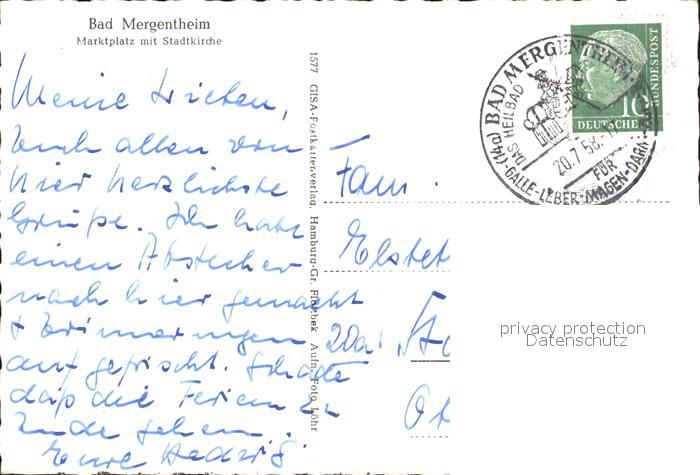 Bad Mergentheim
Marktplatz mit Stadtkirche
Meine Lieben,
Euch allen von
hier herzlichste
Grüße. Ich habe
einen Abstecher
nach hier gemacht
+ Erinnerungen
aufgefrischt. Schade
daß die Ferien zu
Ende gehen.
Eure Hedwig
1577 GISA-Postkartenverlag, Hamburg-Gr. Flottbek Aufn. Foto Löhr
(14a) BAD MERGENTHEIM
DAS HEILBAD
20.7.58
FÜR
GALLE-LEBER-MAGEN-DARM
10
DEUTSCHE
BUNDESPOST
Fam.
Elstet
20a!
Ot
privacy protection
Datenschutz